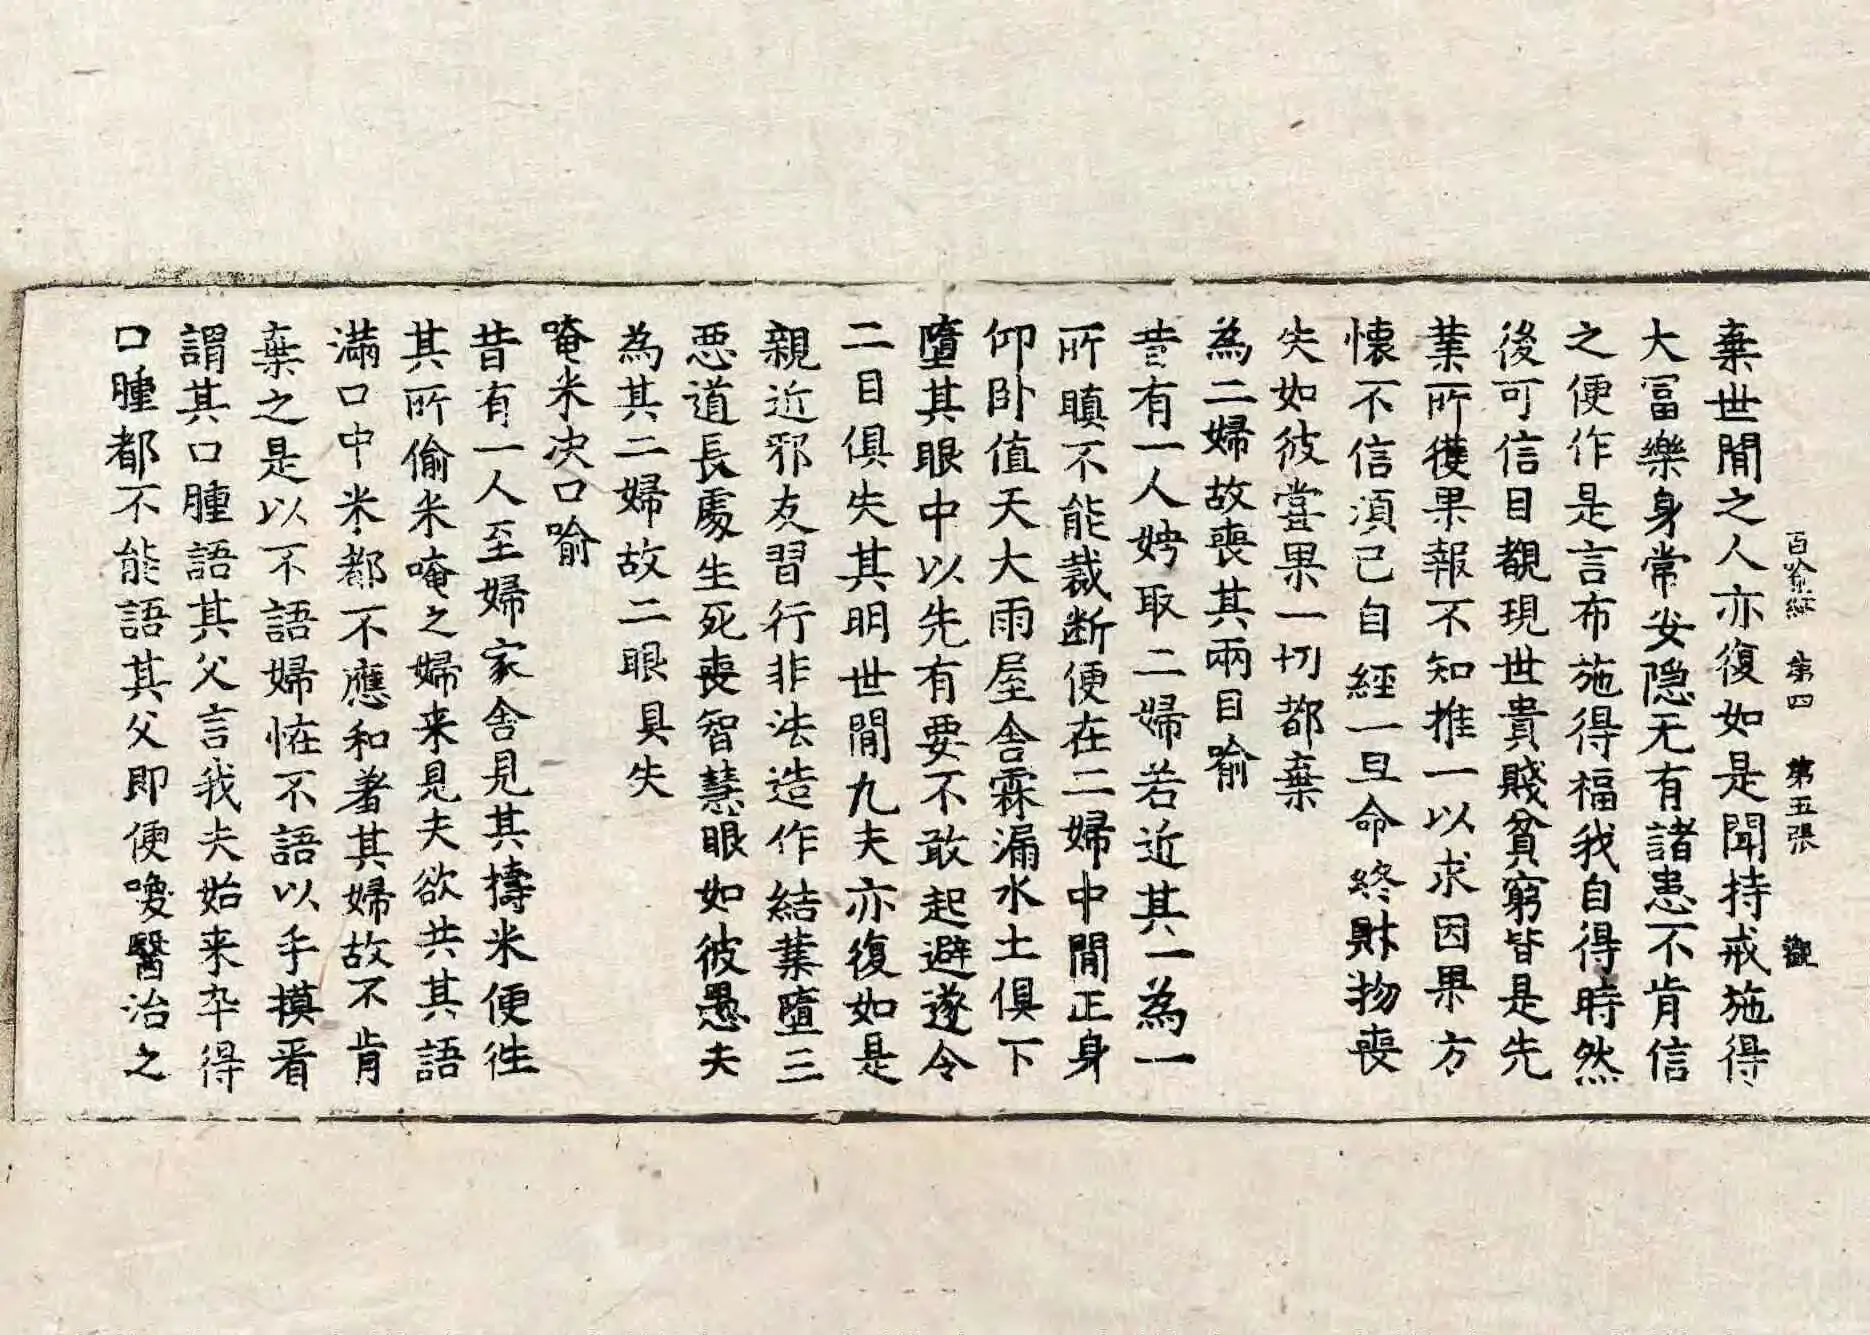 百喻經 第四 第五張 觀
棄世閒之人亦復如是聞持戒施得
大冨樂身常安隱无有諸患不肯信
之便作是言布施得福我自得時然
後可信目覩現世貴賤貧窮皆是先
業所獲果報不知推一以求因果方
懷不信湏已自經一旦命終財物喪
失如彼甞果一切都棄
為二婦故喪其兩目喻
昔有一人娉取二婦若近其一為一
所瞋不能裁断便在二婦中閒正身
仰卧值天大雨屋舎霖漏水土俱下
墮其眼中以先有要不敢起避遂令
二目俱失其明世閒凡夫亦復如是
親近邪友習行非法造作結業墮三
惡道長處生死喪智慧眼如彼愚夫
為其二婦故二眼具失
唵米决口喻
昔有一人至婦家舎見其擣米便往
其所偷米唵之婦来見夫欲共其語
滿口中米都不應和著其婦故不肯
棄之是以不語婦恠不語以手摸看
謂其口腫語其父言我夫始来卒得
口腫都不能語其父即便喚醫治之